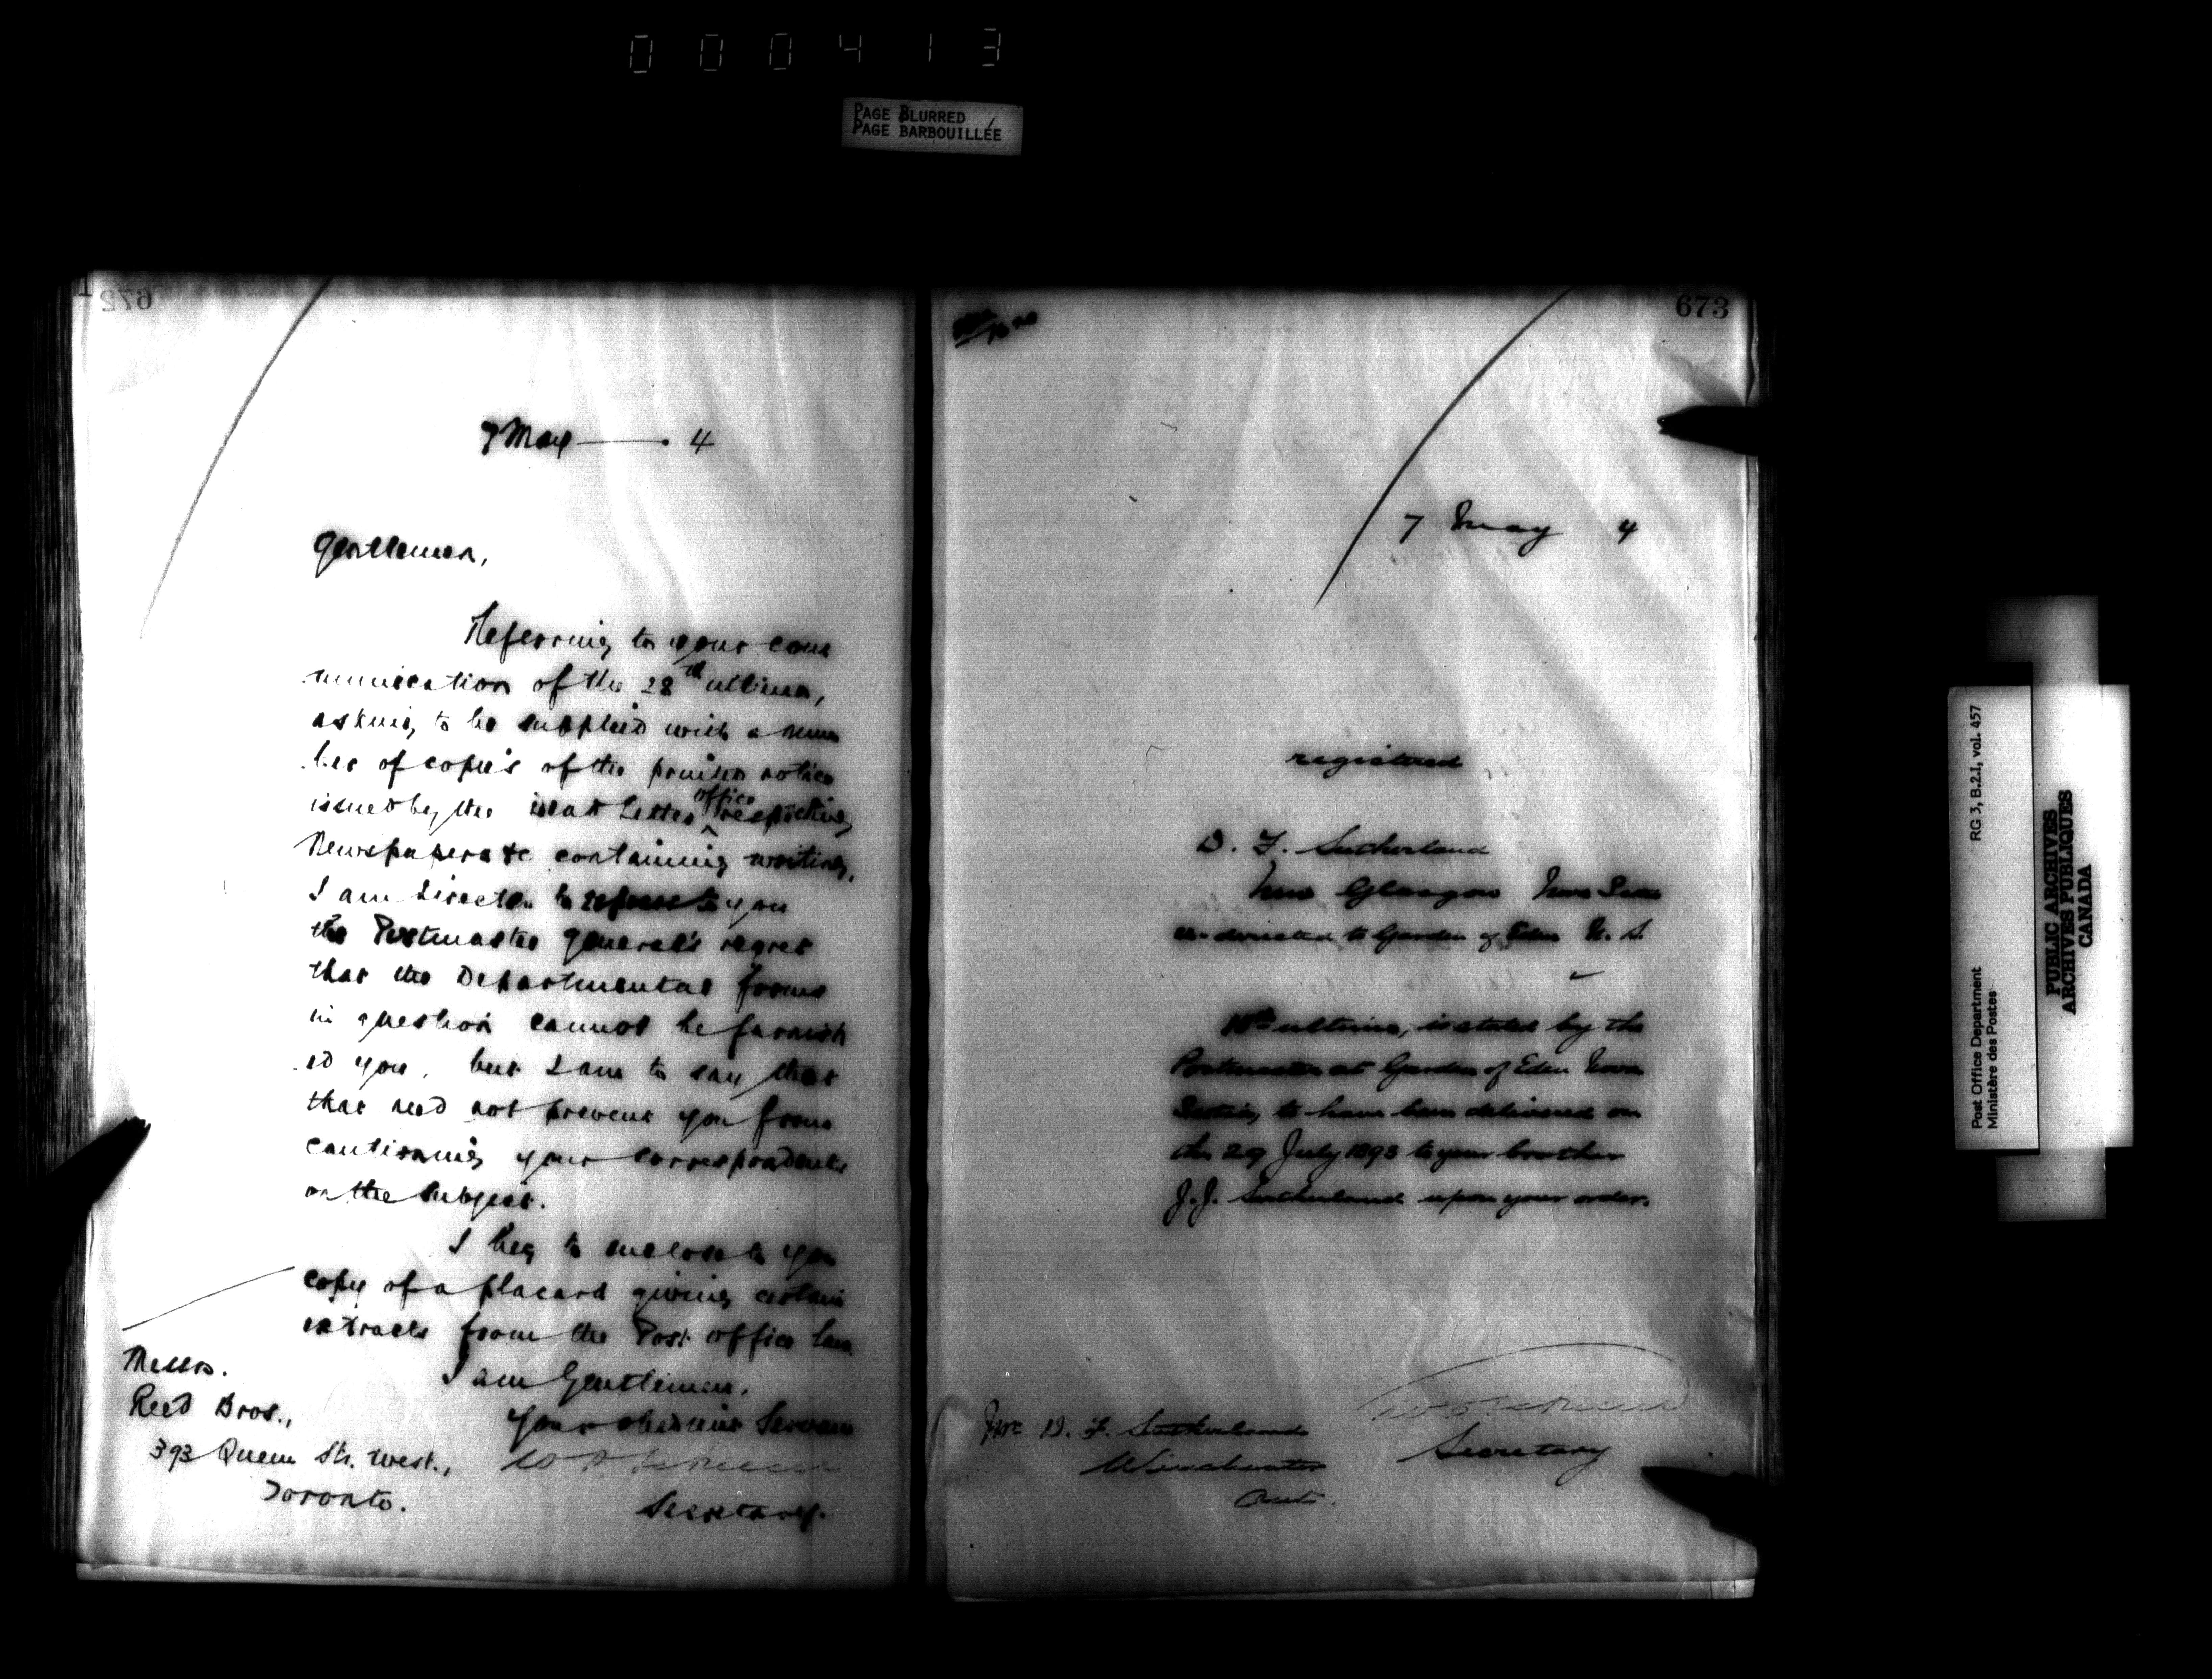 000413
PAGE BLURRED
PAGE BARBOUILLÉE
672
7 May — 4
Gentlemen,
Referring to your com
munication of the 28th ultimo,
asking to be supplied with a num
ber of copies of the printed notice
issued by the Dead Letter office respecting
Newspapers &c containing writing,
I am directed to express to you
the Postmaster General's regret
that the Departmental forms
in question cannot be furnish
ed you, but I am to say that
that need not prevent you from
cautioning your correspondents
on the subject.
I beg to enclose to you
copy of a placard giving certain
extracts from the Post office law
I am Gentlemen,
Your obedient Servant
Secretary.
Messrs.
Reed Bros.,
393 Queen Str. West.,
Toronto.
673
7 May 4
registered
D. F. Sutherland
New Glasgow Nova Scotia
re-directed to Garden of Eden N. S.
ultimo, is stated by the
Postmaster at Garden of Eden Nova
Scotia, to have been delivered on
the 29 July 1893 to your brother
J. J. Sutherland upon your order.
Secretary
D. F. Sutherland
Winchester
Ont.
Post Office Department
Ministère des Postes
RG 3, B.2.I, vol. 457
PUBLIC ARCHIVES
ARCHIVES PUBLIQUES
CANADA